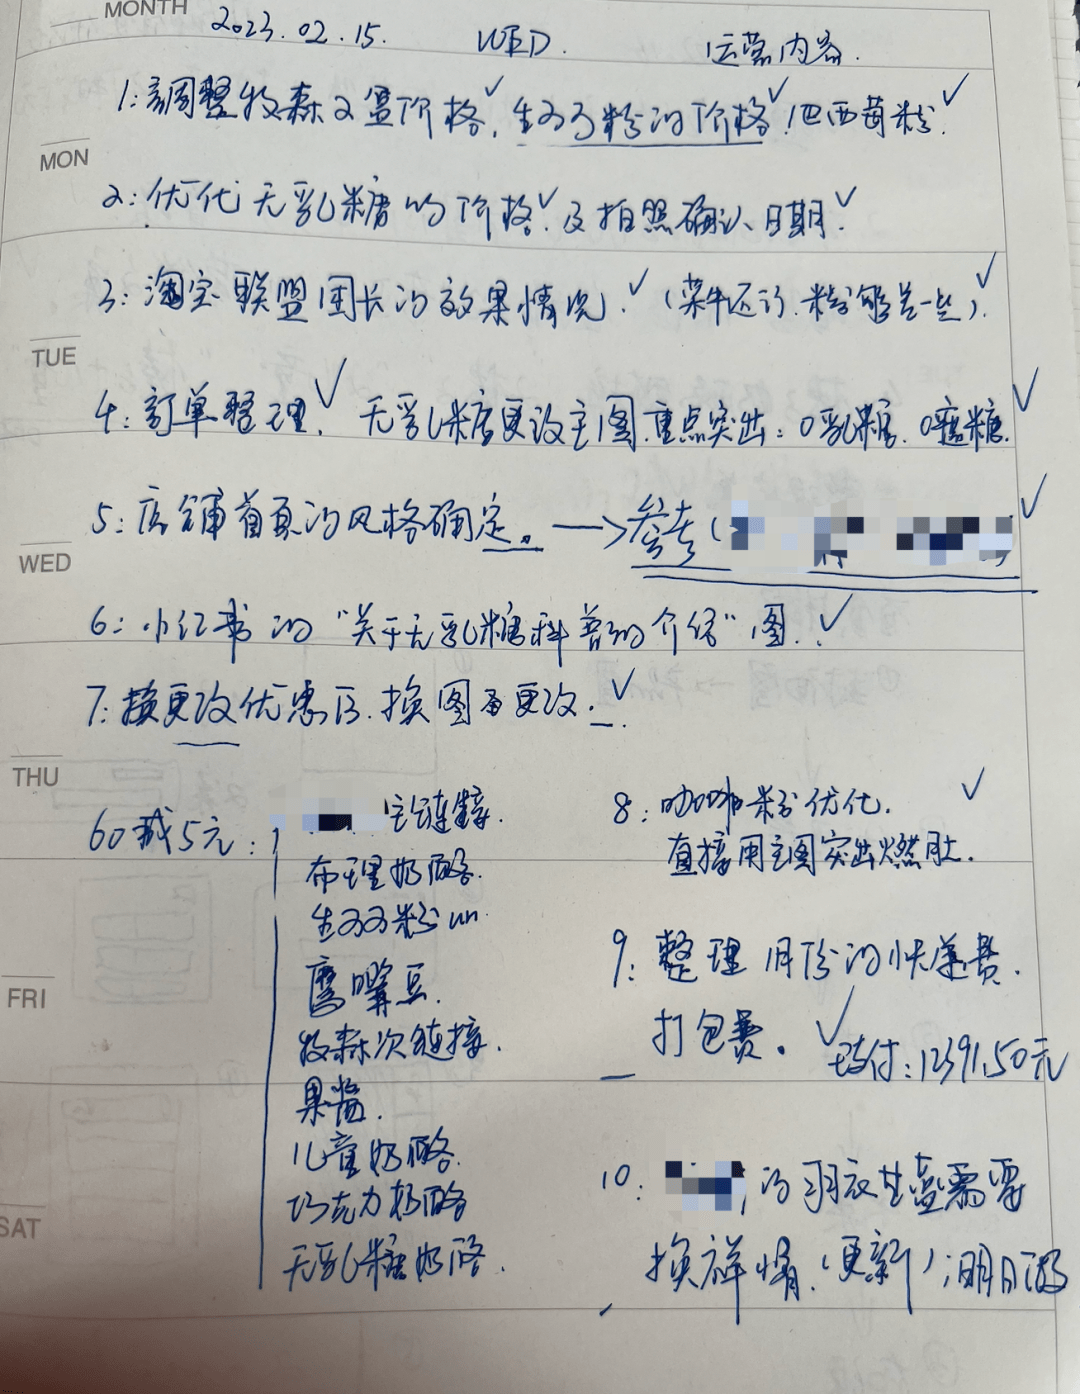 MONTH
2023.02.15. WED. 运营内容.
1:調整牧森 价格✓,生可可粉的价格✓!巴西莓粉✓.
MON
2:优化无乳糖的价格✓.及拍照确认日期✓.
3:淘宝联盟团长的效果情况.✓(菜牛还行.粉够呛一些)✓.
TUE
4:訂单整理✓.无乳糖更改主图.重点突出:0乳糖.0蔗糖✓.
5:店铺首页的风格确定。→参考( ✓
WED
6:小红书的“关于无乳糖科普的介绍”图.✓
7:接更改优惠后.换图 更改.✓
THU
60减5元: 主链接.
布理奶酪.
生可可粉un.
鹰嘴豆.
牧森次链接.
果酱.
儿童奶酪.
巧克力奶酪
无乳糖奶酪.
8:咖啡粉优化. ✓
直接用主图突出燃脂.
9:整理1月份的快递费.
FRI
打包费。✓ 总付:12391.50元
10: 的羽衣甘蓝需要
SAT
换详情.(更新);明日源